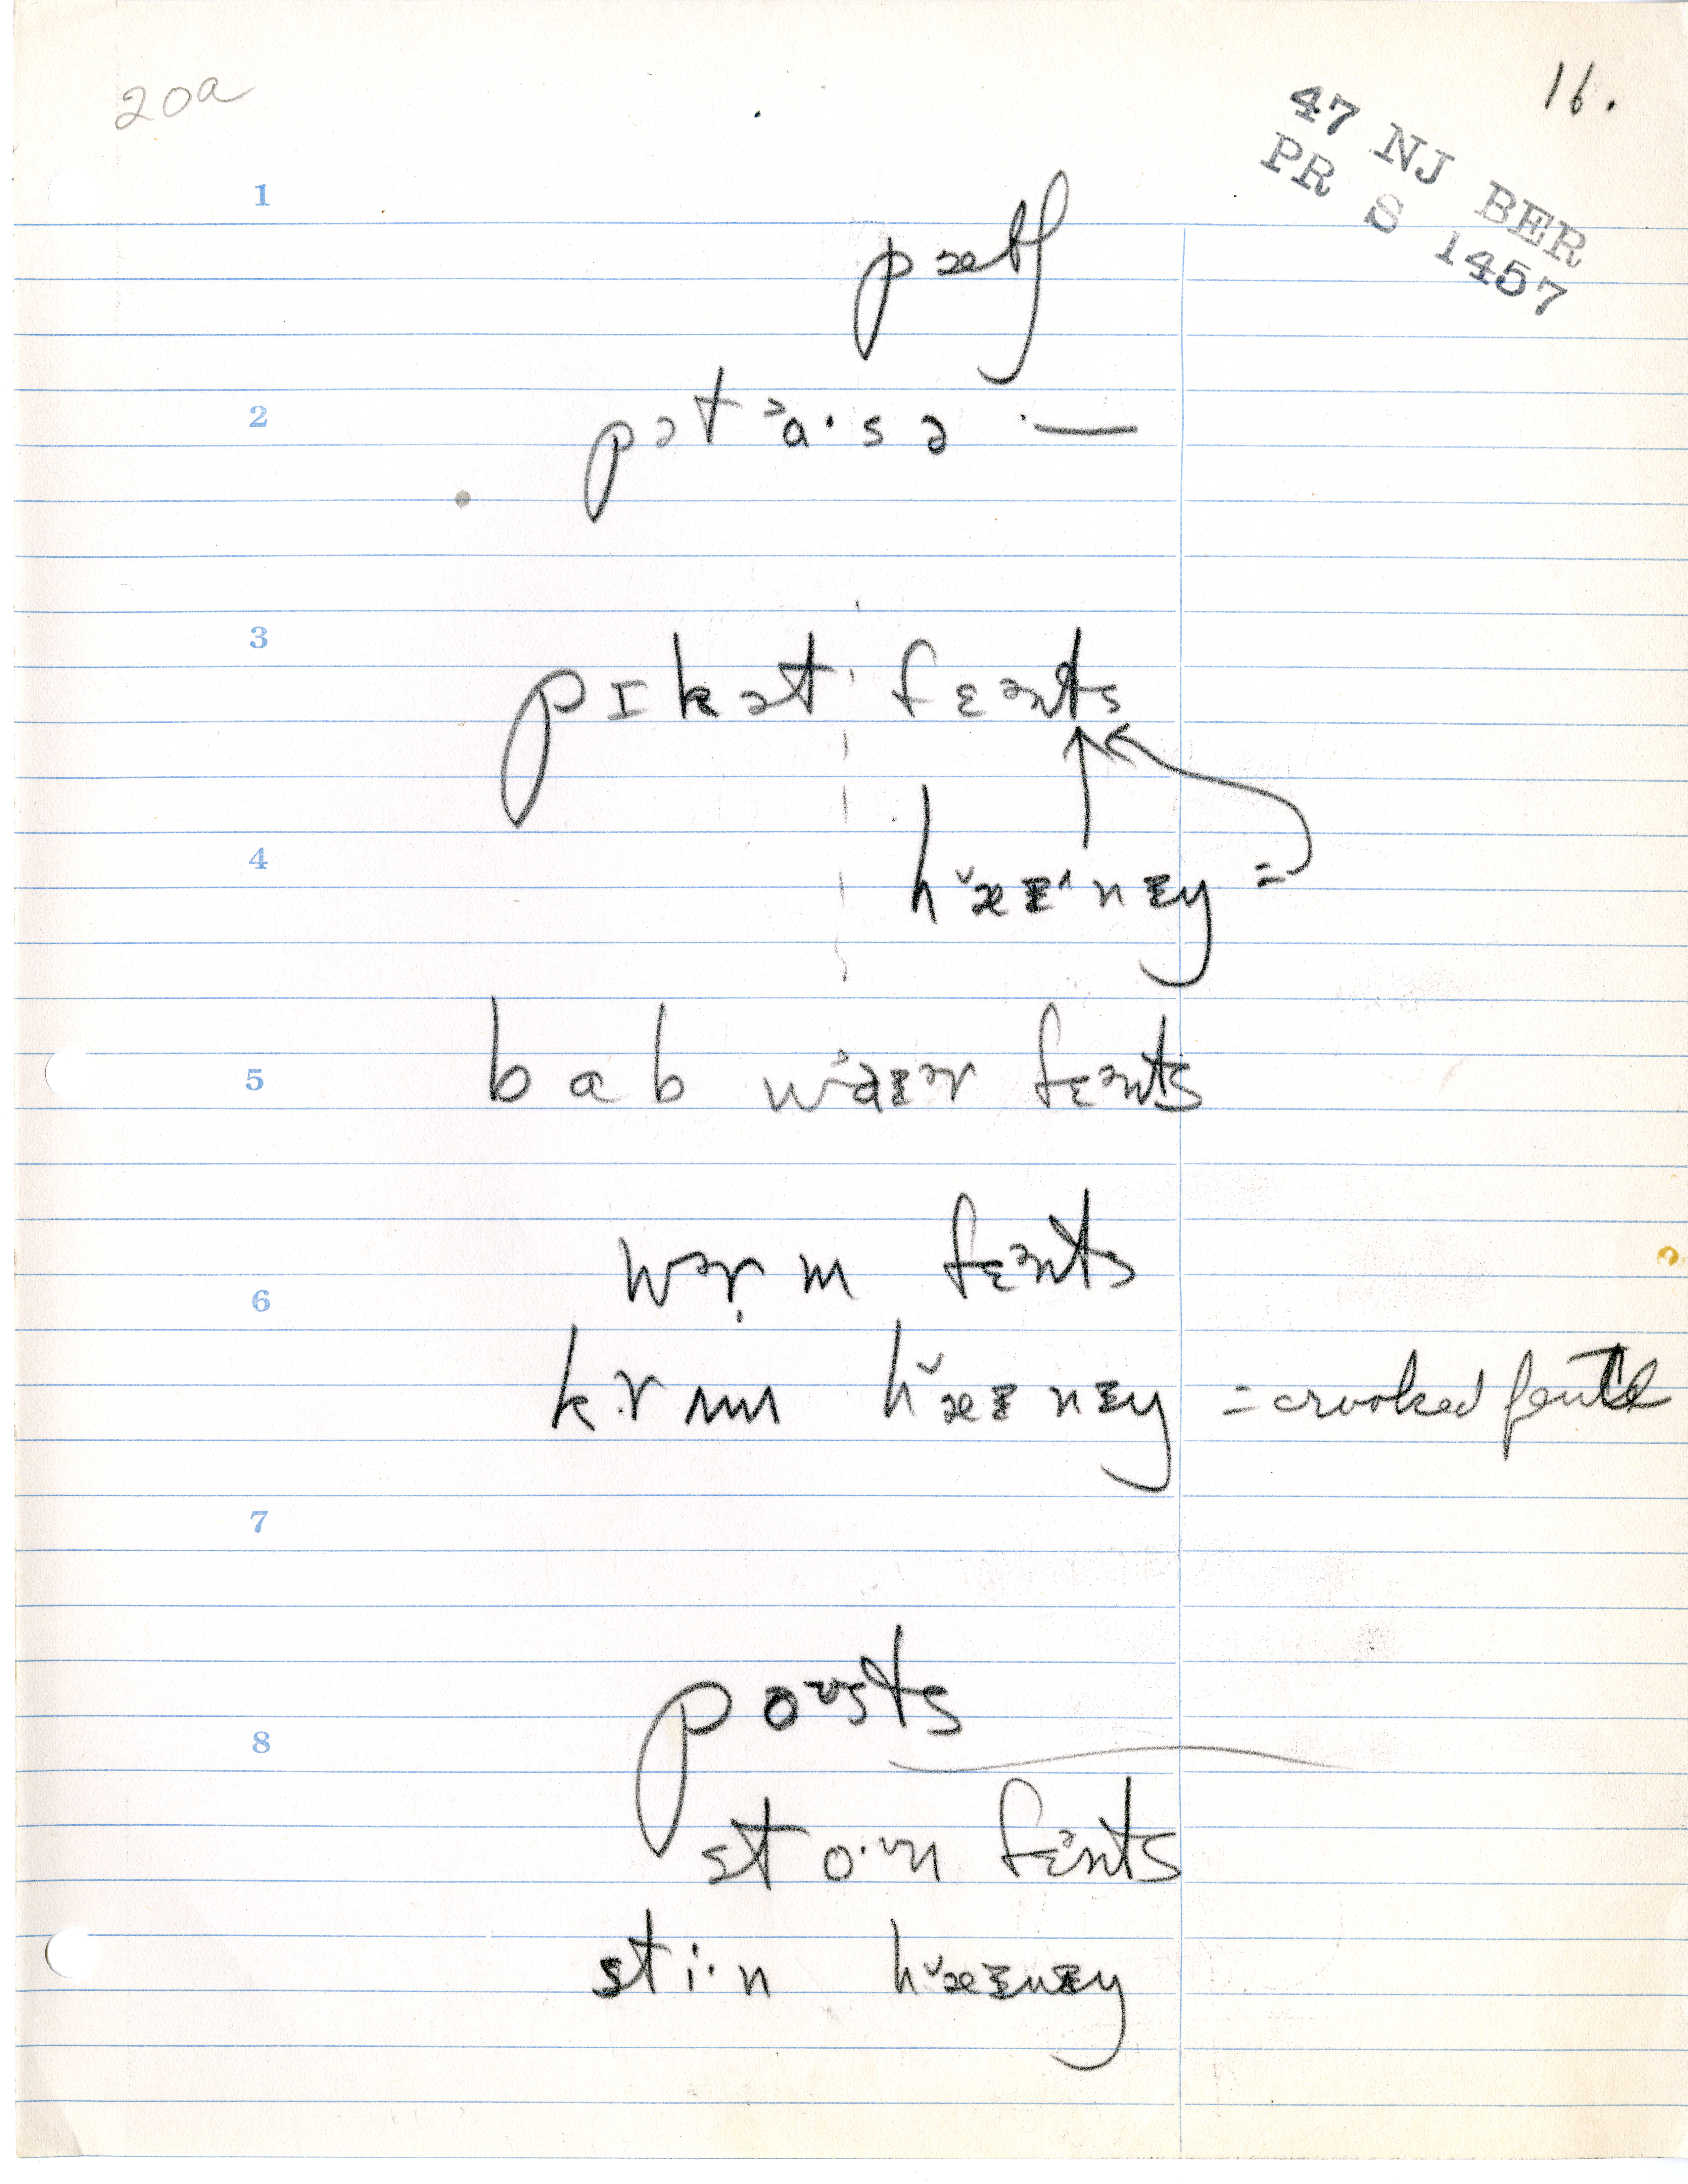 20a
16.
47 NJ BER
PR S 1457
1
pætʃ
2
pətᵊa·sə ·—
3
pɪkət fɛᵊnts
4
hˇæɪ^nɪy =
5
bab wᵊaɪᵊr fɛᵊnts
wᵊṛm fɛᵊnts
6
krʌm hˇæɪnɪy = crooked fence
7
poᶷsts
8
sto·ᶷn fɛᵊnts
sti·n hˇæɪnɪy